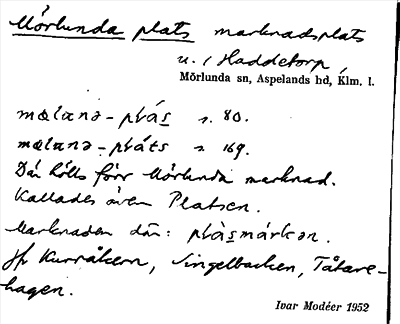 Mörlunda plats marknadsplats
u. / Haddetorp,
Mörlunda sn, Aspelands hd, Klm. l.
mælanə-plás s. 80.
mælunə-pláts s. 169.
Där hölls förr Mörlunda marknad.
Kallades även Platsen.
Marknaden där: plàsmárkən.
Jfr Kurråkern, Singelbacken, Tåtare-
hagen.
Ivar Modéer 1952